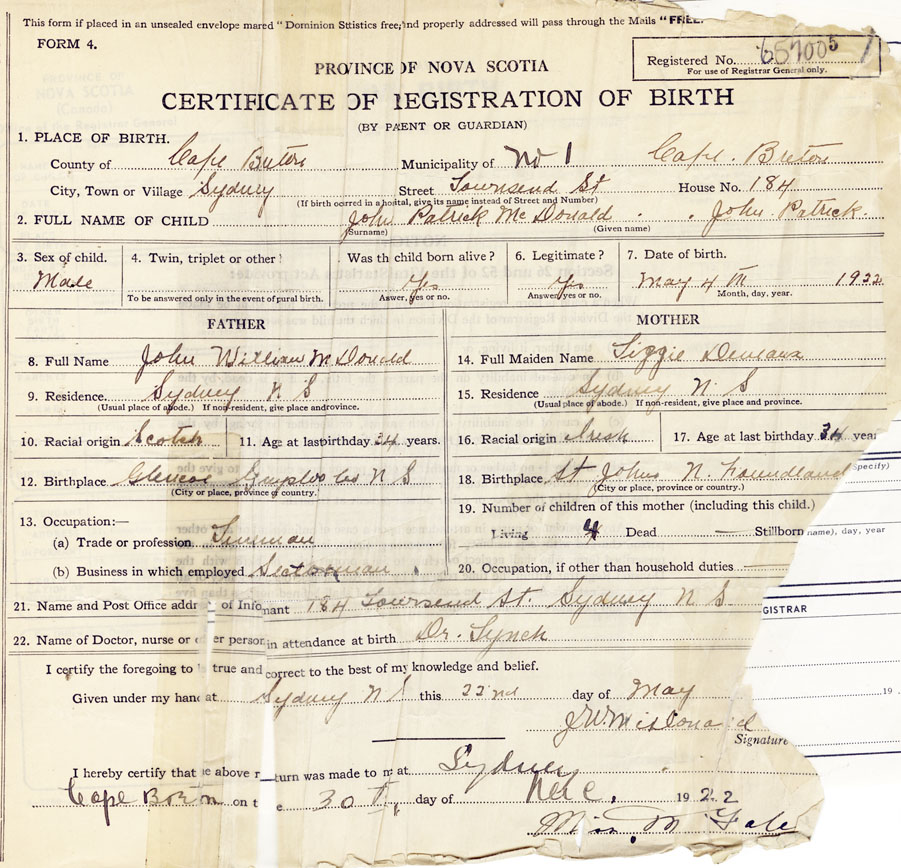 This form if placed in an unsealed envelope mared "Dominion Sttistics free, nd properly addressed will pass through the Mails "FREE."
FORM 4.
Registered No. 657005
For use of Registrar General only.
PROVINCE OF NOVA SCOTIA
CERTIFICATE OF REGISTRATION OF BIRTH
(BY PARENT OR GUARDIAN)
1. PLACE OF BIRTH.
County of Cape Breton Municipality of No 1 Cape Breton
City, Town or Village Sydney Street Townsend St House No. 184
(If birth ocurred in a hospital, give its name instead of Street and Number)
2. FULL NAME OF CHILD John Patrick McDonald John Patrick
(Surname) (Given name)
3. Sex of child. 4. Twin, triplet or other? . Was this child born alive? 6. Legitimate? 7. Date of birth.
Male Yes Yes May 4 1922
To be answered only in the event of pural birth. Aswer, yes or no. Answer, yes or no. Month, day, year.
FATHER MOTHER
8. Full Name John William McDonald 14. Full Maiden Name Lizzie
9. Residence. Sydney N S 15. Residence Sydney N. S
(Usual place of abode.) If non-resident, give place and province. (Usual place of abode.) If non-resident, give place and province.
10. Racial origin Scotch 11. Age at last birthday 34 years. 16. Racial origin Irish 17. Age at last birthday 34 year
12. Birthplace Glencoe N S 18. Birthplace St Johns N Foundland
(City or place, province or country.) (City or place, province or country.)
13. Occupation:— 19. Number of children of this mother (including this child.)
(a) Trade or profession Living 4 Dead — Stillborn
name), day, year
(b) Business in which employed Sectionman 20. Occupation, if other than household duties
21. Name and Post Office addr of Infomant 184 Townsend St. Sydney N S
GISTRAR
22. Name of Doctor, nurse or other person in attendance at birth Dr. Lynch
I certify the foregoing to be true and correct to the best of my knowledge and belief.
Given under my hand at Sydney N S this 22nd day of May
19
J.W. McDonald
Signature
I hereby certify that the above return was made to me at Sydney
Cape Breton on the 30th day of Dec, 1922
Miss M